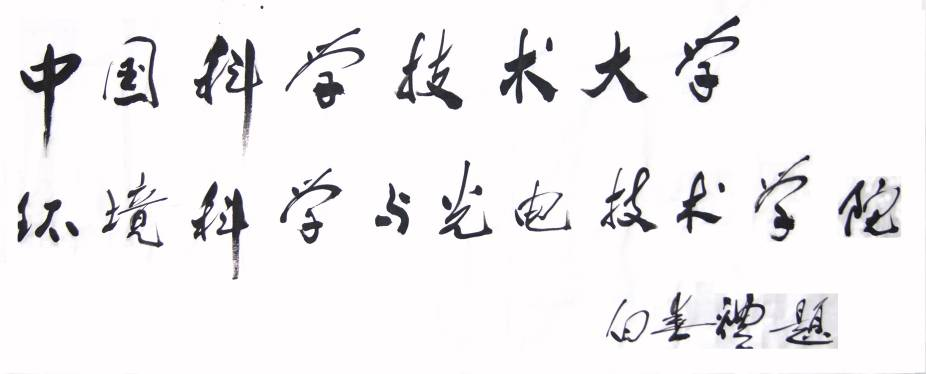 中国科学技术大学
环境科学与光电技术学院
白春禮 题